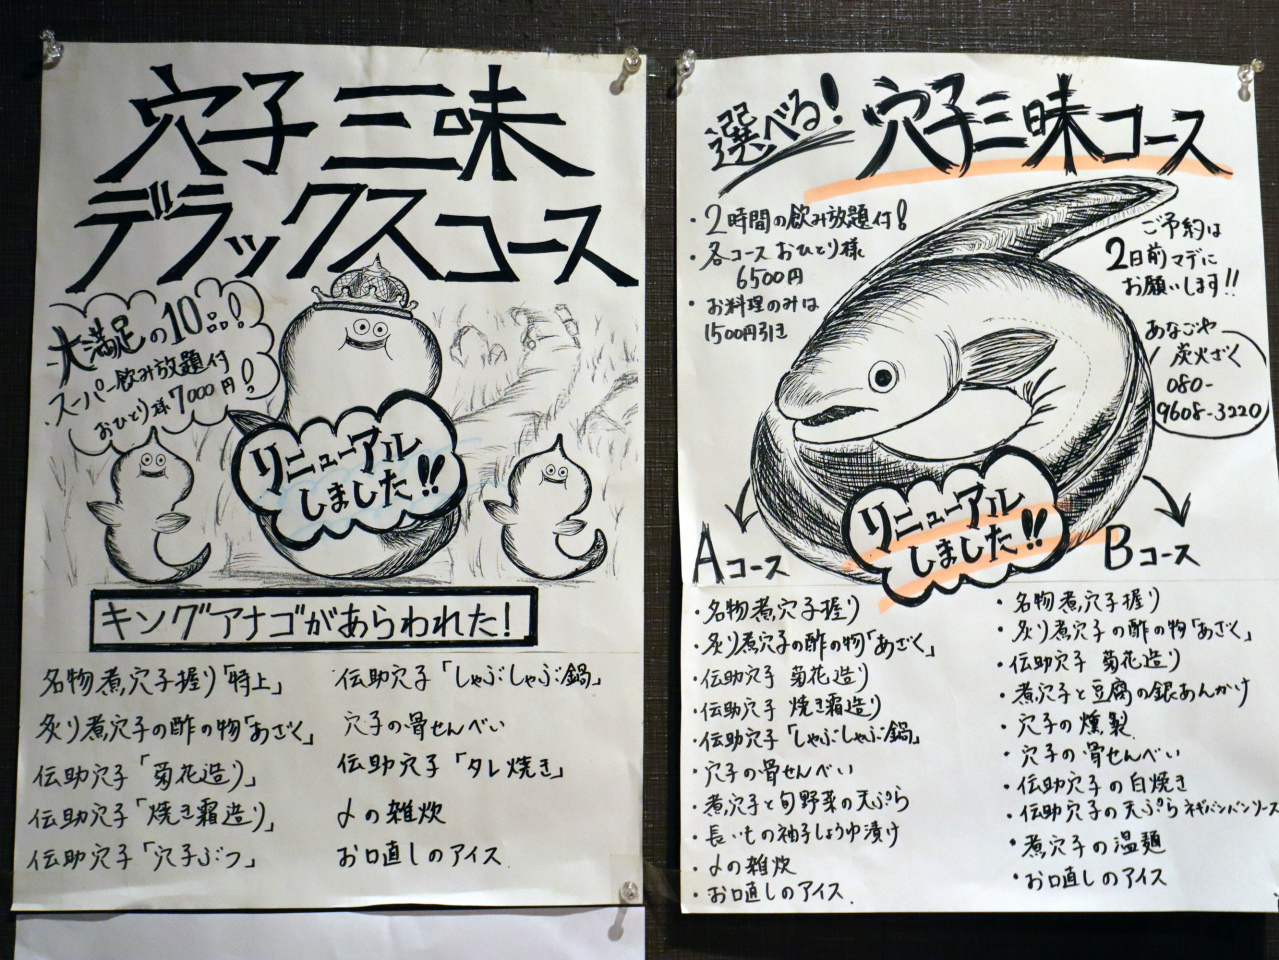 穴子三味
デラックスコース
大満足の10品!
スーパー飲み放題付
おひとり様7000円!
リニューアル
しました!!
キングアナゴがあらわれた!
名物煮穴子握り「特上」
炙り煮穴子の酢の物「あざく」
伝助穴子「菊花造り」
伝助穴子「焼き霜造り」
伝助穴子「穴子ぶつ」
伝助穴子「しゃぶしゃぶ鍋」
穴子の骨せんべい
伝助穴子「タレ焼き」
〆の雑炊
お口直しのアイス
選べる!穴子三昧コース
・2時間の飲み放題付!
・各コースおひとり様
6500円
・お料理のみは
1500円引き
ご予約は
2日前マデに
お願いします!!
あなごや
炭火ざく
080-
9608-3220
リニューアル
しました!!
Aコース
・名物煮穴子握り
・炙り煮穴子の酢の物「あざく」
・伝助穴子 菊花造り
・伝助穴子 焼き霜造り
・伝助穴子「しゃぶしゃぶ鍋」
・穴子の骨せんべい
・煮穴子と旬野菜の天ぷら
・長いもの柚子しょうゆ漬け
・〆の雑炊
・お口直しのアイス
Bコース
・名物煮穴子握り
・炙り煮穴子の酢の物「あざく」
・伝助穴子 菊花造り
・煮穴子と豆腐の銀あんかけ
・穴子の燻製
・穴子の骨せんべい
・伝助穴子の白焼き
・伝助穴子の天ぷらネギバンバンソース
・煮穴子の温麺
・お口直しのアイス